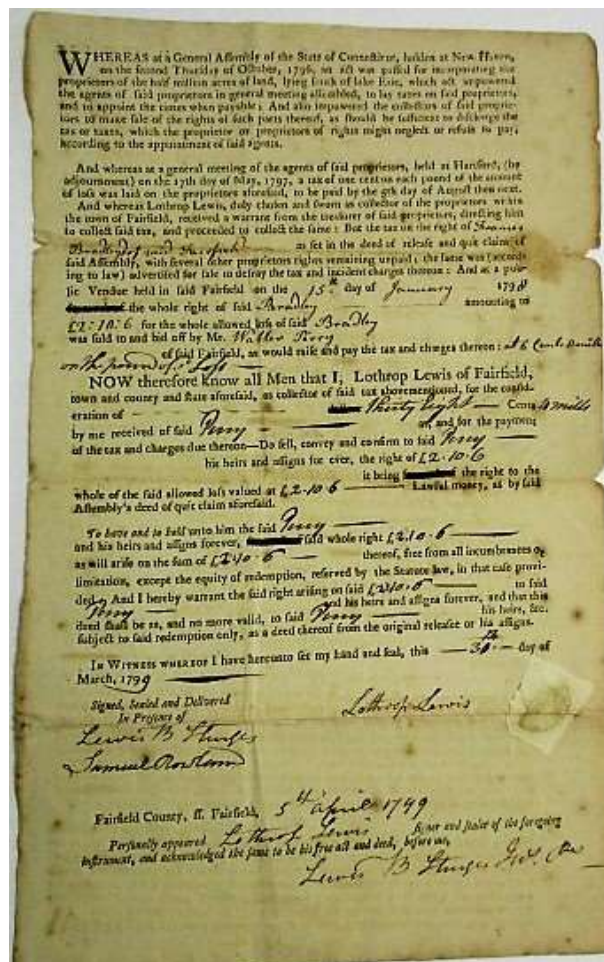 WHEREAS at a General Assembly of the State of Connecticut, holden at New Haven,
on the second Thursday of October, 1796, an act was passed for incorporating the
proprietors of the half million acres of land, lying south of lake Erie, which act impowered
the agents of said proprietors in general meeting assembled, to lay taxes on said proprietors,
and to appoint the times when payable; And also impowered the collectors of said proprie-
tors to make sale of the rights of such parts thereof, as should be sufficient to discharge the
tax or taxes, which the proprietor or proprietors of rights might neglect or refuse to pay,
according to the appointment of said agents.
And whereas at a general meeting of the agents of said proprietors, held at Hartford, (by
adjournment) on the 17th day of May, 1797, a tax of one cent on each pound of the amount
of loss was laid on the proprietors aforesaid, to be paid by the 9th day of August then next.
And whereas Lothrop Lewis, duly chosen and sworn as collector of the proprietors within
the town of Fairfield, received a warrant from the treasurer of said proprietors, directing him
to collect said tax, and proceeded to collect the same: But the tax on the right of
Bradley of said Fairfield as set in the deed of release and quit claim of
said Assembly, with several other proprietors rights remaining unpaid; the same was (accord-
ing to law) advertised for sale to defray the tax and incident charges thereon: And at a pub-
lic Vendue held in said Fairfield on the 15th day of January 1798
the whole right of said Bradley amounting to
£2-10-6 for the whole allowed loss of said Bradley
was sold to and bid off by Mr. Walter Perry
of said Fairfield, as would raise and pay the tax and charges thereon: at 6 Cents
on the pound of Loss
NOW therefore know all Men that I, Lothrop Lewis of Fairfield,
town and county and state aforesaid, as collector of said tax abovementioned, for the consid-
eration of thirty eight Cents mills
by me received of said Perry and for the payment
of the tax and charges due thereon—Do sell, convey and confirm to said Perry
his heirs and assigns for ever, the right of £2-10-6
it being of the right to the
whole of the said allowed loss valued at £2-10-6 Lawful money, as by said
Assembly's deed of quit claim aforesaid.
To have and to hold unto him the said Perry
and his heirs and assigns forever, said whole right £2-10-6
as will arise on the sum of £2-10-6 thereof, free from all incumbrances or
limitation, except the equity of redemption, referred by the Statute law, in that case provi-
ded. And I hereby warrant the said right arising on said £2-10-6 to said
Perry and his heirs and assigns forever, and that this
deed shall be as, and no more valid, to said Perry his heirs, &c.
subject to said redemption only, as a deed thereof from the original releasee or his assigns.
IN WITNESS WHEREOF I have hereunto set my hand and seal, this 30th day of
March, 1799
Signed, Sealed and Delivered
In Presence of
Lothrop Lewis
Lewis B Sturges
Samuel Rowland
Fairfield County, ss. Fairfield, 5th April 1799
Personally appeared Lothrop Lewis signer and sealer of the foregoing
instrument, and acknowledged the same to be his free act and deed, before me,
Lewis B Sturges